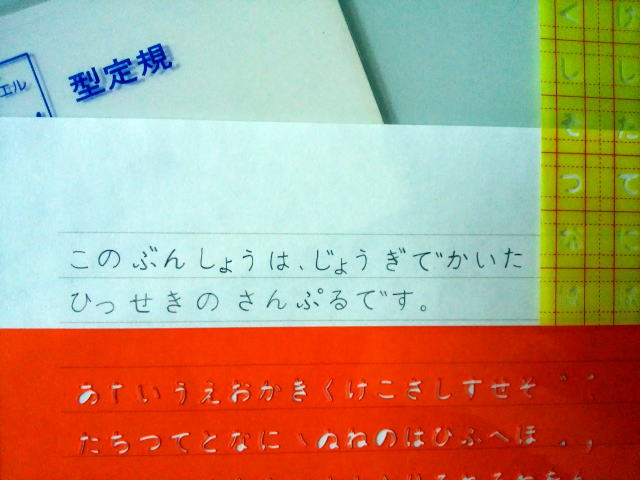 エル
型定規
このぶんしょうは、じょうぎでかいた
ひっせきのさんぷるです。
あTいうえおかきくけこさしすせそ゛゜
たちつてとなにヽぬねのはひふへほ。,
くしそつ
けしたて